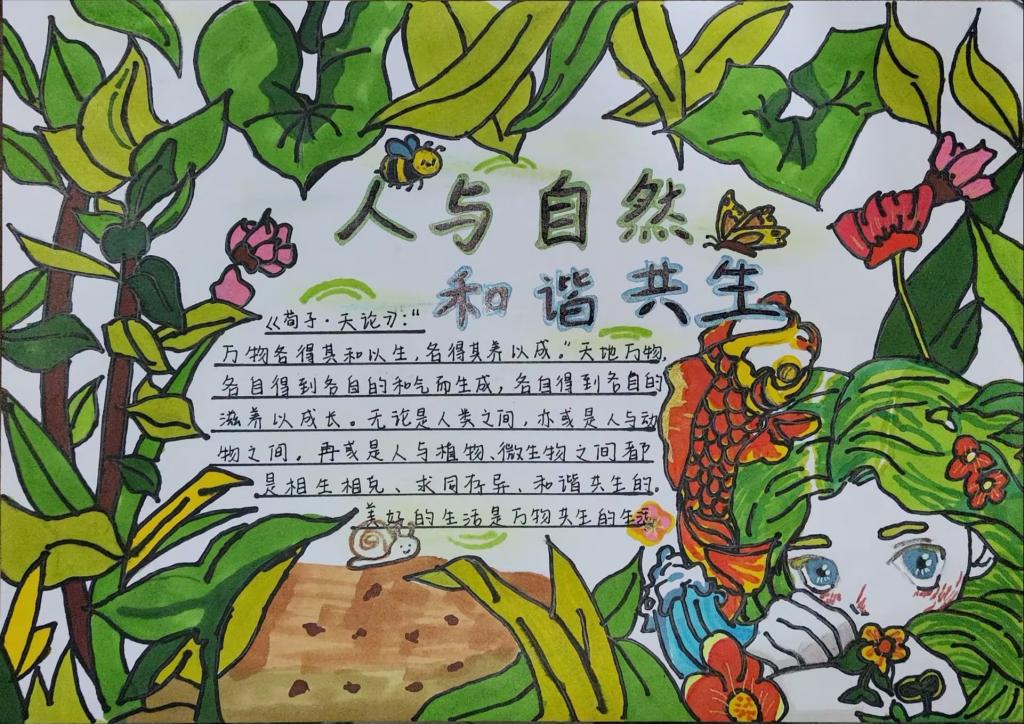 人与自然
和谐共生
《荀子·天论》：“
万物各得其和以生，各得其养以成。”天地万物，
各自得到各自的和气而生成，各自得到各自的
滋养以成长。无论是人类之间，亦或是人与动
物之间，再或是人与植物、微生物之间都
是相生相克、求同存异、和谐共生的。
美好的生活是万物共生的生活